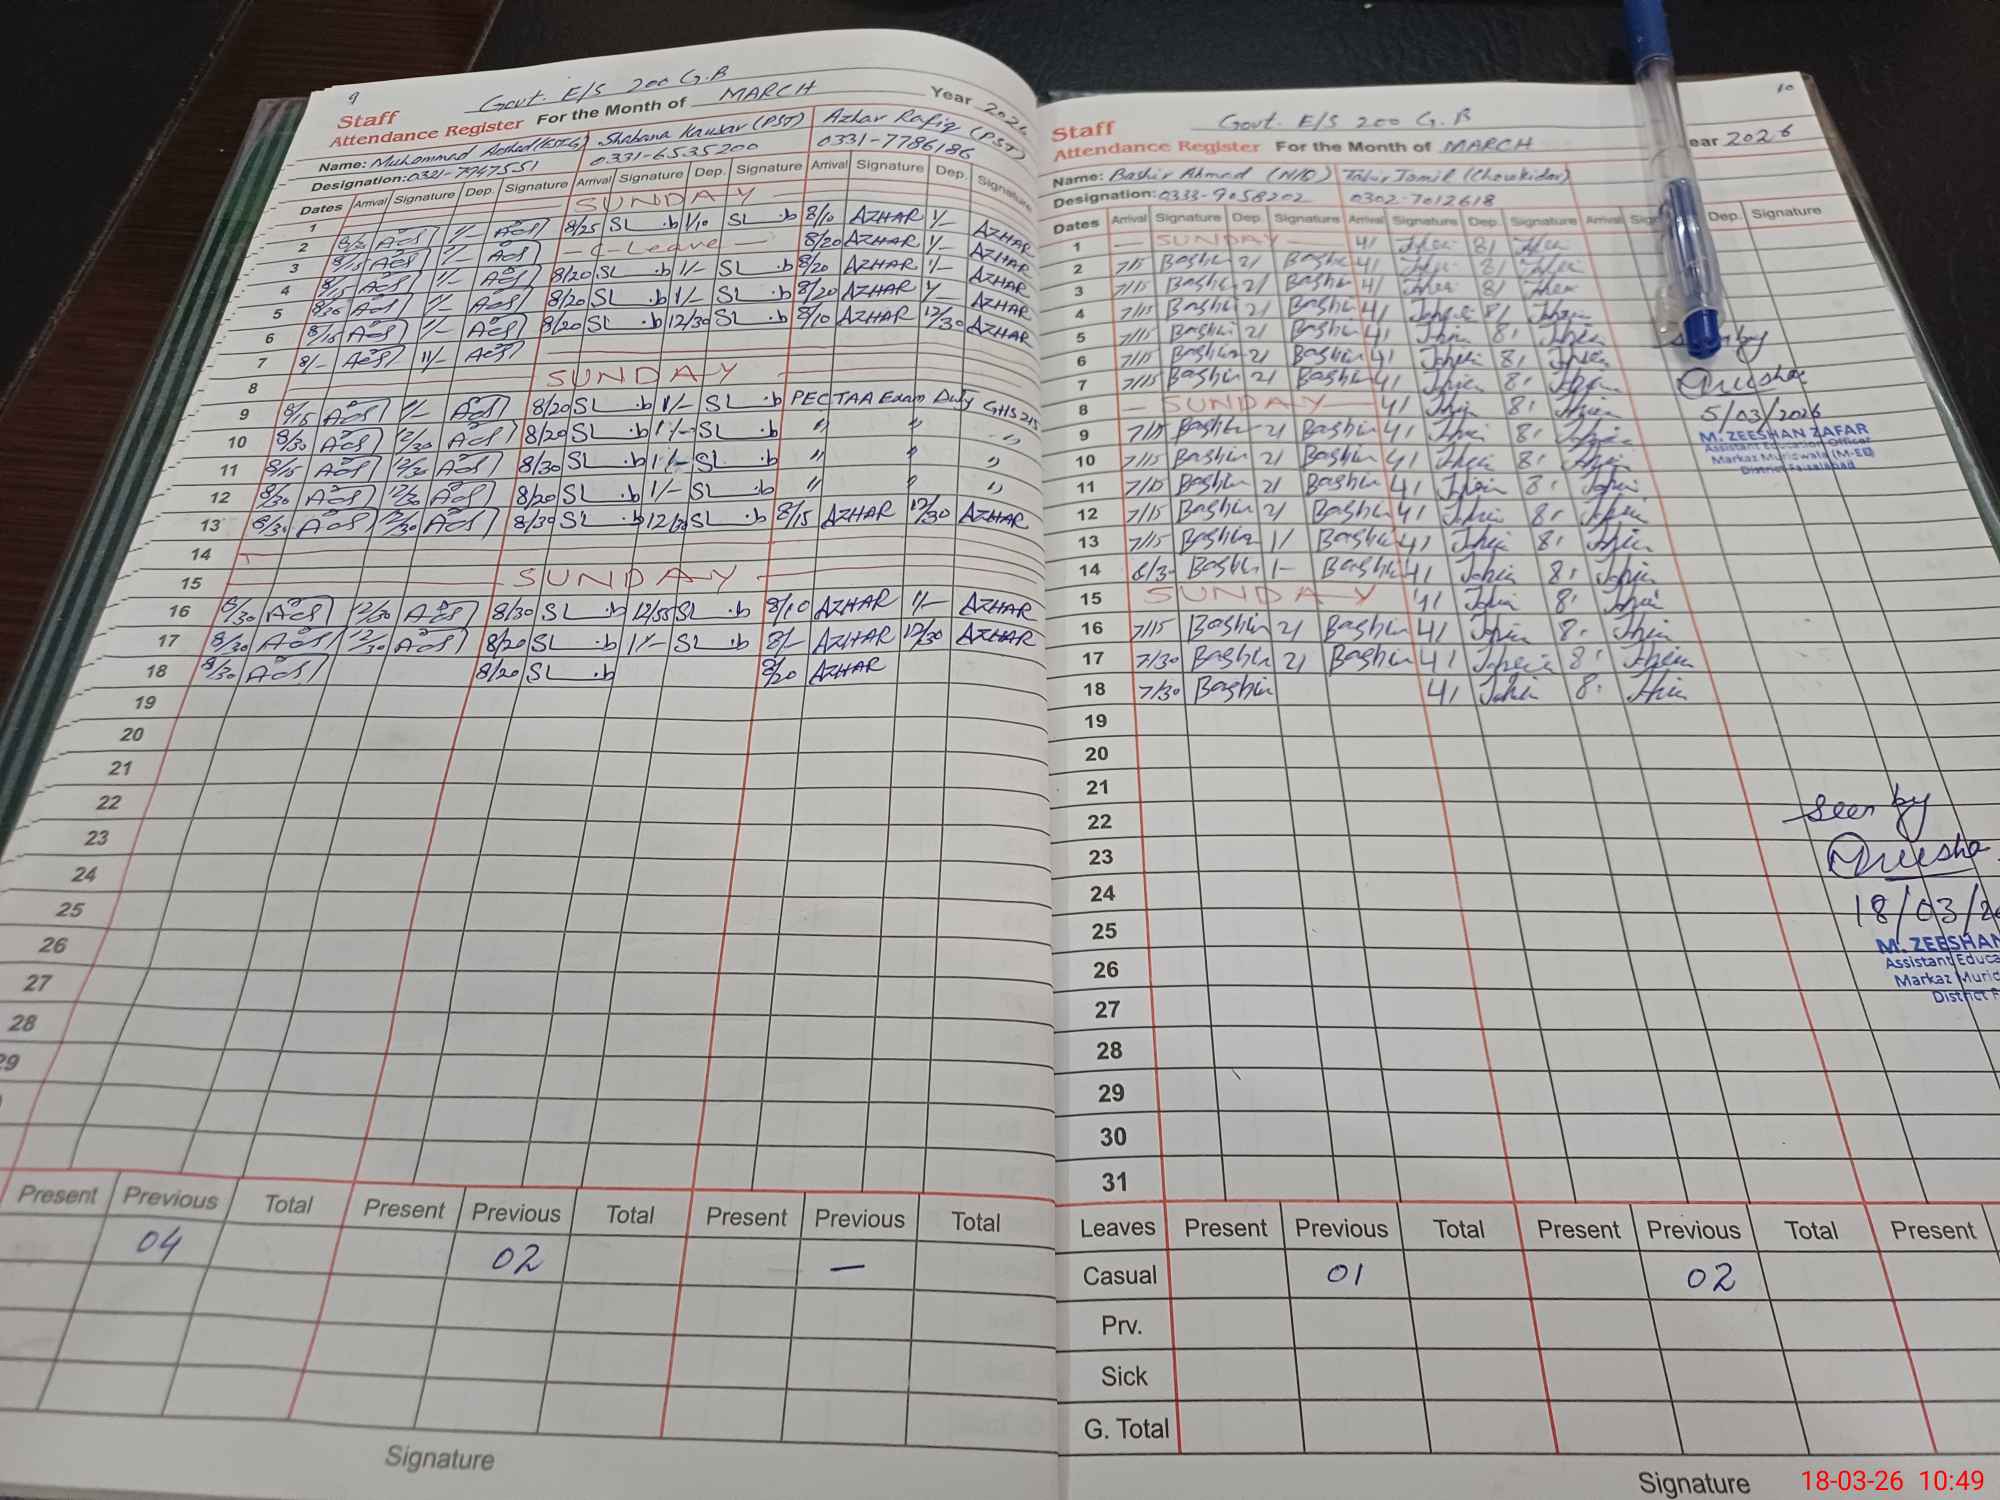 9
Govt. E/S 200 G.B
Staff
Attendance Register For the Month of MARCH Year 2026
Name: Muhammad Arshad Shabana Kausar (PST) Azhar Rafiq (PST)
Designation: 0321-7947551 0331-6535200 0331-7786186
Dates Arrival Signature Dep. Signature Arrival Signature Dep. Signature Arrival Signature Dep. Signature
1 SUNDAY
2 8/25 SL 1/10 SL 8/10 AZHAR 1/- AZHAR
3 8/15 1/- C-Leave 8/20 AZHAR 1/- AZHAR
4 8/15 1/- 8/20 SL 1/- SL 8/20 AZHAR 1/- AZHAR
5 1/- 8/20 SL 1/- SL 8/20 AZHAR 1/- AZHAR
6 8/15 1/- 8/20 SL 12/30 SL 8/10 AZHAR 12/30 AZHAR
7 8/- 11/-
8 SUNDAY
9 8/15 1/- 8/20 SL 1/- SL PECTAA Exam Duty GHS 215
10 8/30 12/30 8/20 SL 1/- SL " " "
11 8/15 12/30 8/30 SL 1/- SL " " "
12 8/30 12/30 8/20 SL 1/- SL " " "
13 8/30 12/30 8/30 SL 12/30 SL 8/15 AZHAR 12/30 AZHAR
14
15 SUNDAY
16 8/30 12/30 8/30 SL 12/35 SL 8/10 AZHAR 1/- AZHAR
17 8/30 12/30 8/20 SL 1/- SL 8/- AZHAR 12/30 AZHAR
18 8/30 8/20 SL 8/20 AZHAR
19
20
21
22
23
24
25
26
27
28
29
Present Previous Total Present Previous Total Present Previous Total
04 02 —
Signature
10
Govt. E/S 200 G.B
Staff
Attendance Register For the Month of MARCH ear 2026
Name: Bashir Ahmed (N/Q) Tahir Jamil (Chowkidar)
Designation: 0333-9058202 0302-7012618
Dates Arrival Signature Dep. Signature Arrival Signature Dep. Signature Arrival Sig Dep. Signature
1 SUNDAY 4/ 8/
2 7/15 Bashir 2/ Bashir 4/ 8/
3 7/15 Bashir 2/ Bashir 4/ 8/
4 7/15 Bashir 2/ Bashir 4/ 8/
5 7/15 Bashir 2/ Bashir 4/ 8/
6 7/15 Bashir 2/ Bashir 4/ 8/
7 7/15 Bashir 2/ Bashir 4/ 8/
8 SUNDAY 4/ 8/
9 7/15 Bashir 2/ Bashir 4/ 8/
10 7/15 Bashir 2/ Bashir 4/ 8/
11 7/15 Bashir 2/ Bashir 4/ 8/
12 7/15 Bashir 2/ Bashir 4/ 8/
13 7/15 Bashir 1/ Bashir 4/ 8/
14 8/3 Bashir 1- Bashir 4/ 8/
15 SUNDAY 4/ 8/
16 7/15 Bashir 2/ Bashir 4/ 8/
17 7/30 Bashir 2/ Bashir 4/ 8/
18 7/30 Bashir 4/ 8/
19
20
21
22
23
24
25
26
27
28
29
30
31
by
5/03/2026
M. ZEESHAN ZAFAR
Assistant Education Officer
Markaz Muridwala (M-EE)
District Faisalabad
seen by
18/03/2
M. ZEESHAN
Assistant Educa
Markaz Murid
District F
Leaves Present Previous Total Present Previous Total Present
Casual 01 02
Prv.
Sick
G. Total
Signature
18-03-26 10:49